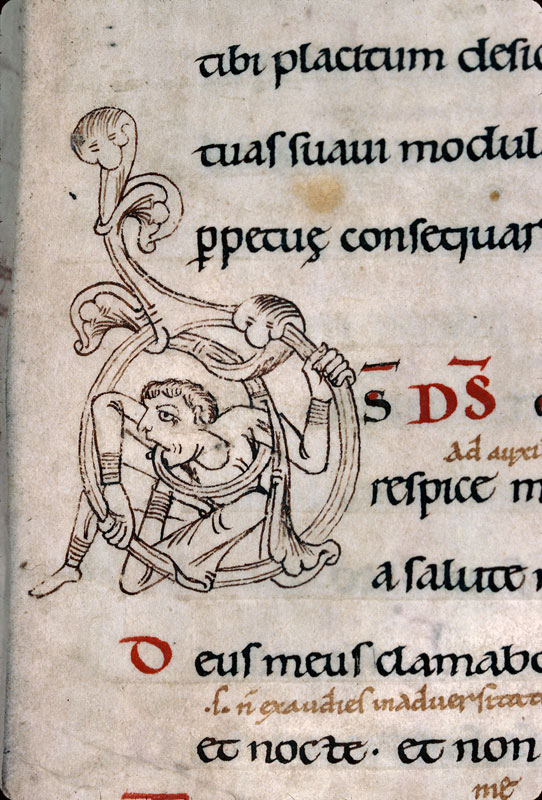 tibi placitum desid
tuas suaui modul
ꝑpetuę consequar
S̄ D̄S̄
Ad auxi
respice m
a salute
Deus meus clamabo
.s. n̄ exaudies in aduersitat
et nocte. et non
me